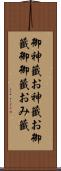 御神籤お神籤お御
籤御御籤おみ籤